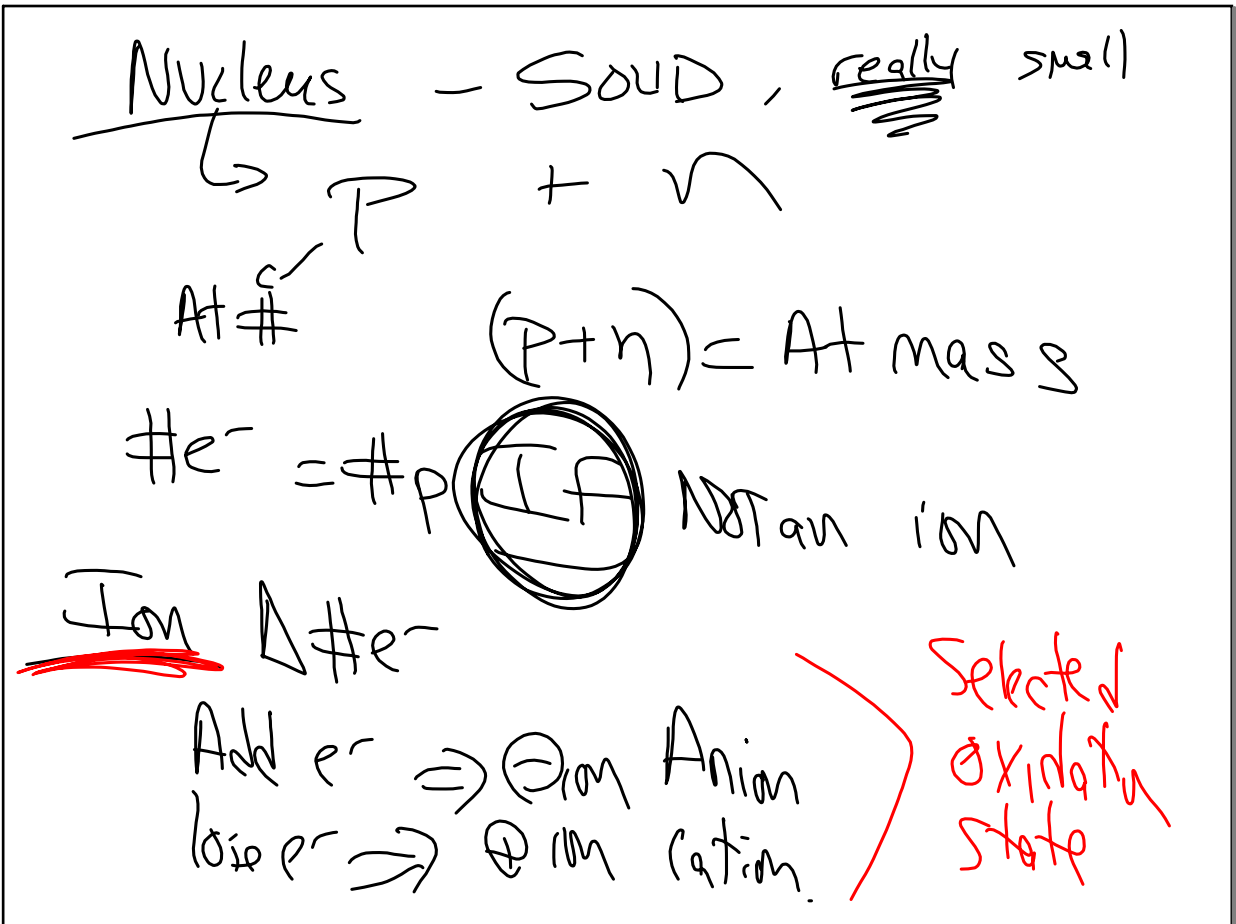 Nucleus - SOLID, really small
P + n
At #
(p+n) = At mass
#e⁻ = #p (If NOT an ion
Ion Δ#e⁻
Add e⁻ ⇒ ⊖ion Anion
lose e⁻ ⇒ ⊕ ion Cation.
Selected
oxidation
state